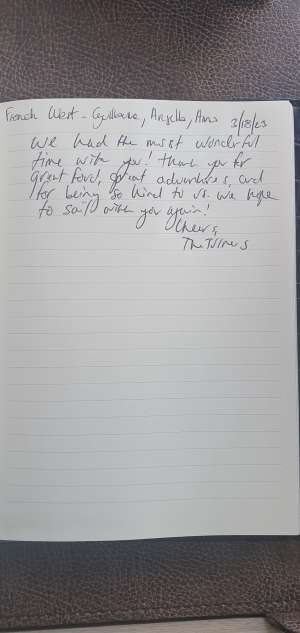 French West - Guillaume, Angella,
3/18/23
We had the most wonderful
time with you! Thank you for
great food, great adventures, and
for being so kind to us. We hope
to sail with you again!
Cheers,
The